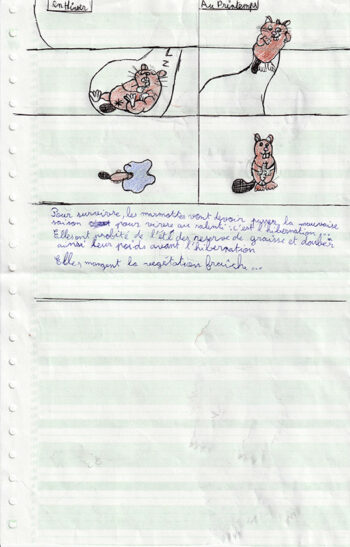 en Hiver
Au Printemps
Z
Z
Pour survivre, les marmottes vont devoir passer, la mauvaise
saison pour vivre au ralenti : c'est l'hibernation...
Elles ont profité de l'été des reserve de graisse et doubler
ainsi leur poids avant l'hibernation
Elles mangent la vegetation fraîche...